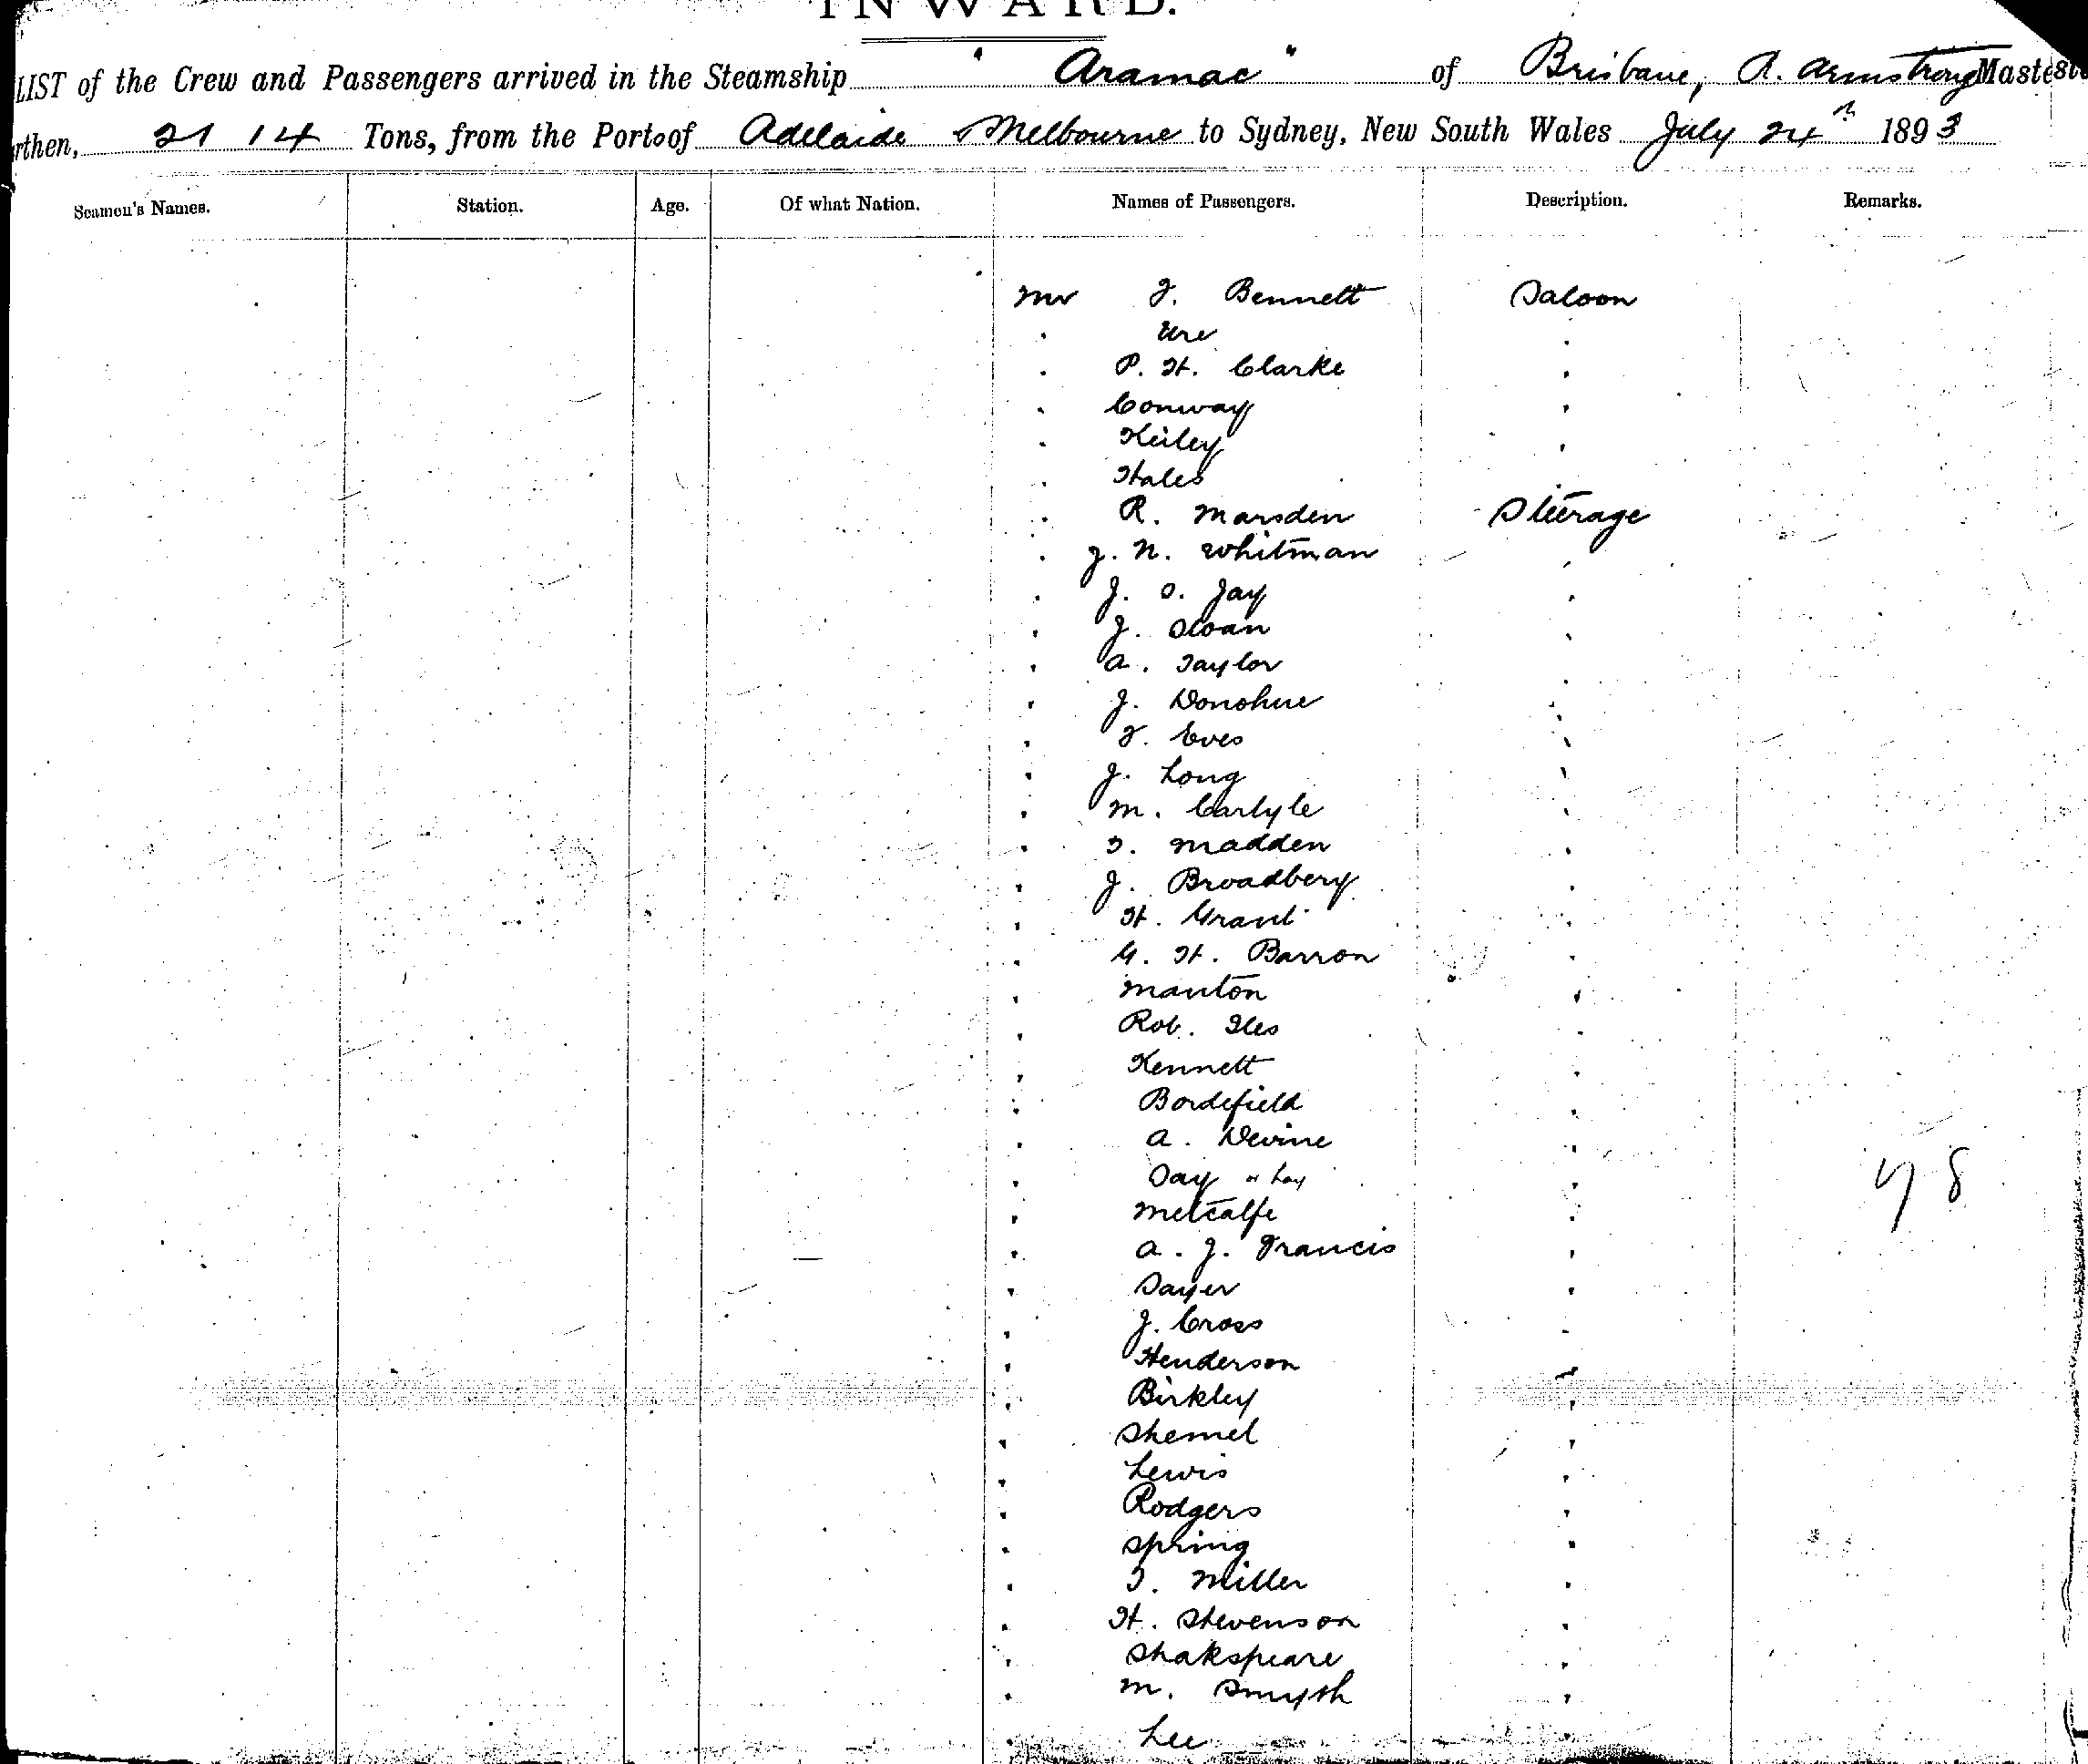 INWARD.
LIST of the Crew and Passengers arrived in the Steamship "Aramac" of Brisbane, A. Armstrong Master
rthen, 2114 Tons, from the Port of Adelaide & Melbourne to Sydney, New South Wales July 24th 1893
Seamen's Names. Station. Age. Of what Nation. Names of Passengers. Description. Remarks.
Mr J. Bennett Saloon
" Ure "
" P. H. Clarke "
" Conway "
" Keiley "
" Hales
" R. Marsden Steerage
" J. N. Whitman "
" J. S. Jay "
" J. Sloan "
" A. Taylor "
" J. Donohue "
" F. Eves "
" J. Long "
" M. Carlyle "
" T. Madden "
" J. Broadbery "
" H. Grant "
" G. H. Barron "
" Manton "
" Rob. Iles "
" Kennett "
" Bordefield "
" A. Devine "
" Day or Lay "
78
" Metcalfe "
" A. J. Francis "
" Sayer "
" J. Cross "
" Henderson "
" Birkley "
" Shemel "
" Lewis "
" Rodgers "
" Spring "
" T. Miller "
" H. Stevenson "
" Shakspeare "
" M. Smyth "
" Lee "